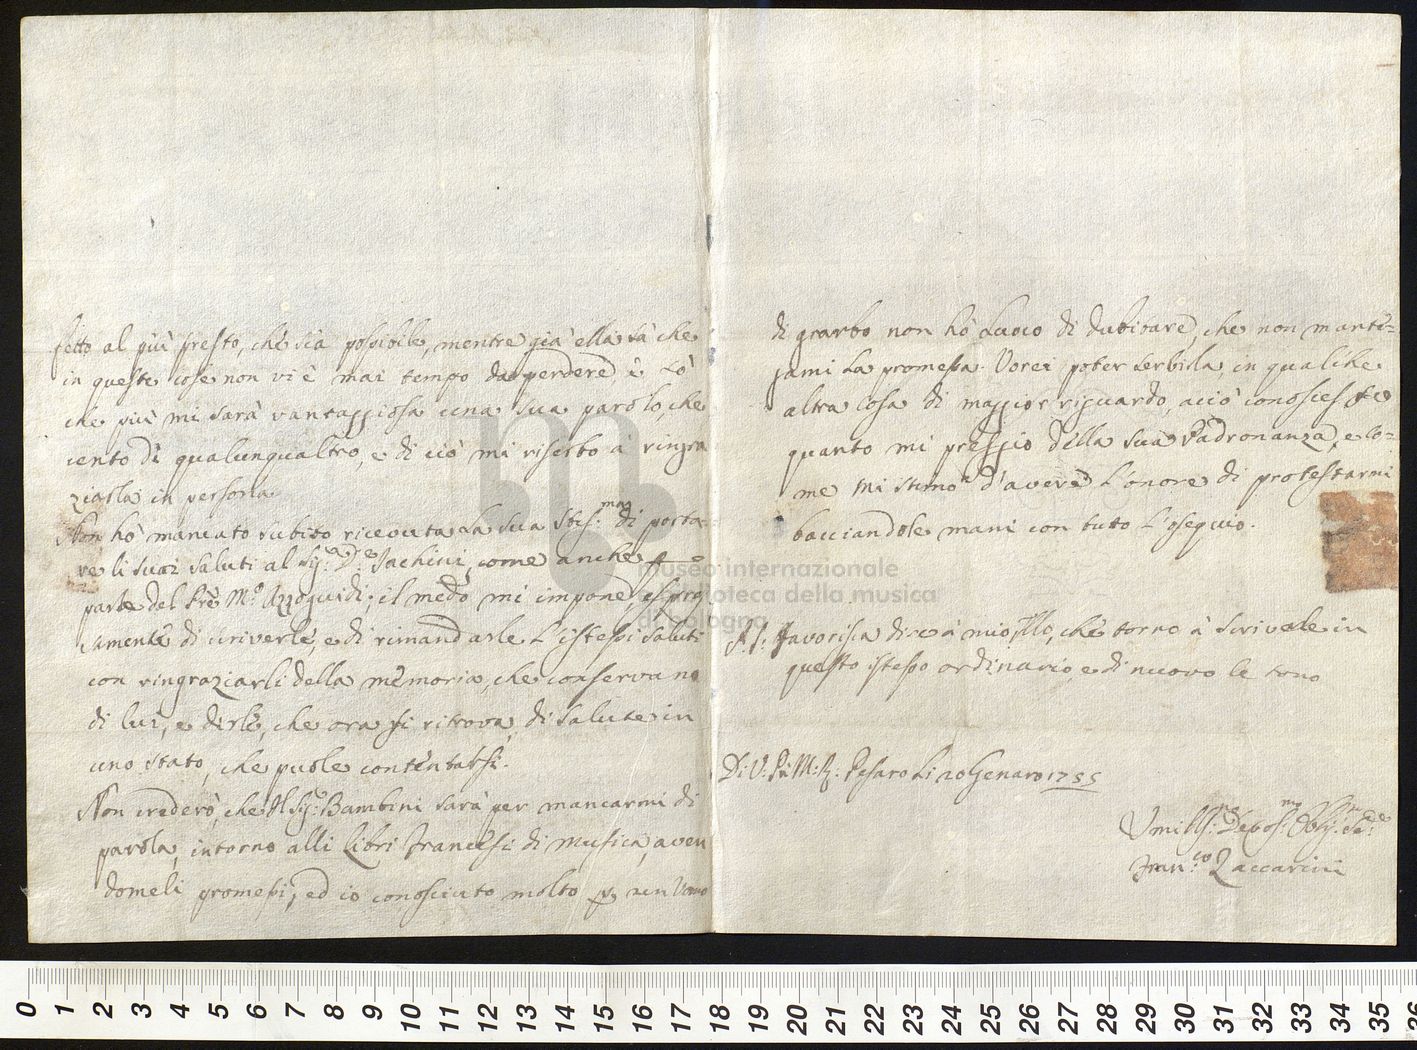 fetto al più presto, che sia possibile, mentre già ella sà che
in queste cose non vi è mai tempo da perdere è sò
che più mi sarà vantaggiosa una sua parola, che
cento di qualunqualtro, e di ciò mi riserbo à ringra
ziarla in persona
Non hò mancato subito riceuuta la sua Stis.ma di porta-
re li suoi saluti al Sig.r D.r Sachini, come anche
parte del Pre M.o Azzoguidi; il medo mi impone,
camente di scriverle, e di rimandarle l'istessi saluti
con ringraziarli della memoria, che conserva
di lui, e dirle, che ora si ritrova di salute in
uno stato, che puole contentarsi.
Non crederò, che Il Sig.r Bambini sarà per mancarmi di
parola, intorno alli libri francesi di musica, aven
domeli promessi, ed io conosciuto molto per un Uomo
di garbo non hò luoco di dubitare, che non manti-
jami la promessa. Vorei poter servirla in qualche
altra cosa di maggior riguardo, acciò conoscesse
quanto mi preggio della sua Padronanza, e co-
me mi stimo d'avere l'onore di protestarmi
bacciandole mani con tutto l'osequio.
P.S. Favorisca dire à mio fllo, che torno à scriverle in
questo istesso ordinario, e di nuovo le sono
Di V. Pà M: R: Pesaro li 20 Genaro 1755
Umiliss.mo Devos.mo Obg.mo Ser.e
Fran.co Zaccarini
museo internazionale
biblioteca della musica
di bologna
0 1 2 3 4 5 6 7 8 9 10 11 12 13 14 15 16 17 18 19 20 21 22 23 24 25 26 27 28 29 30 31 32 33 34 35 36